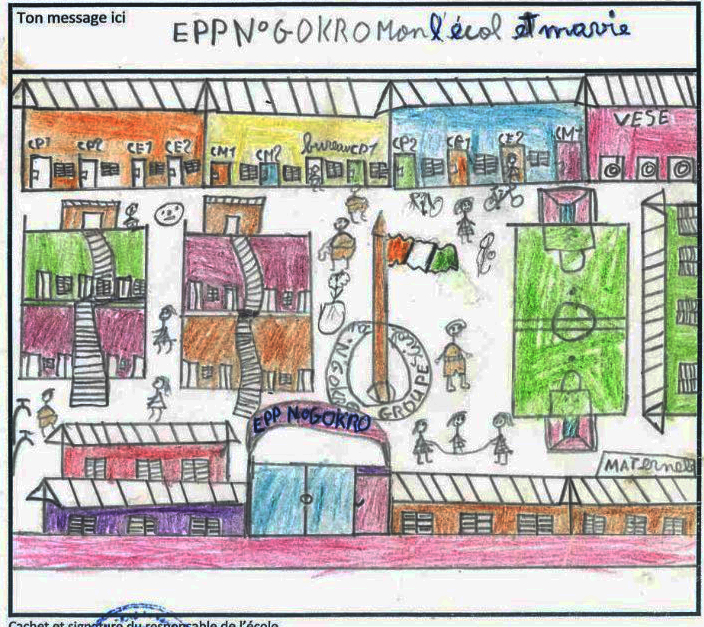 Ton message ici
EPP N°GOKRO Mon l'écol et mavie
VESE
CP1 CP2 CE1 CE2 CM1 CM2 bureau CP1 CP2 CE1 CE2 CM1
GROUPE
EPP N°GOKRO
MATERNEL
Cachet et signature du responsable de l'école